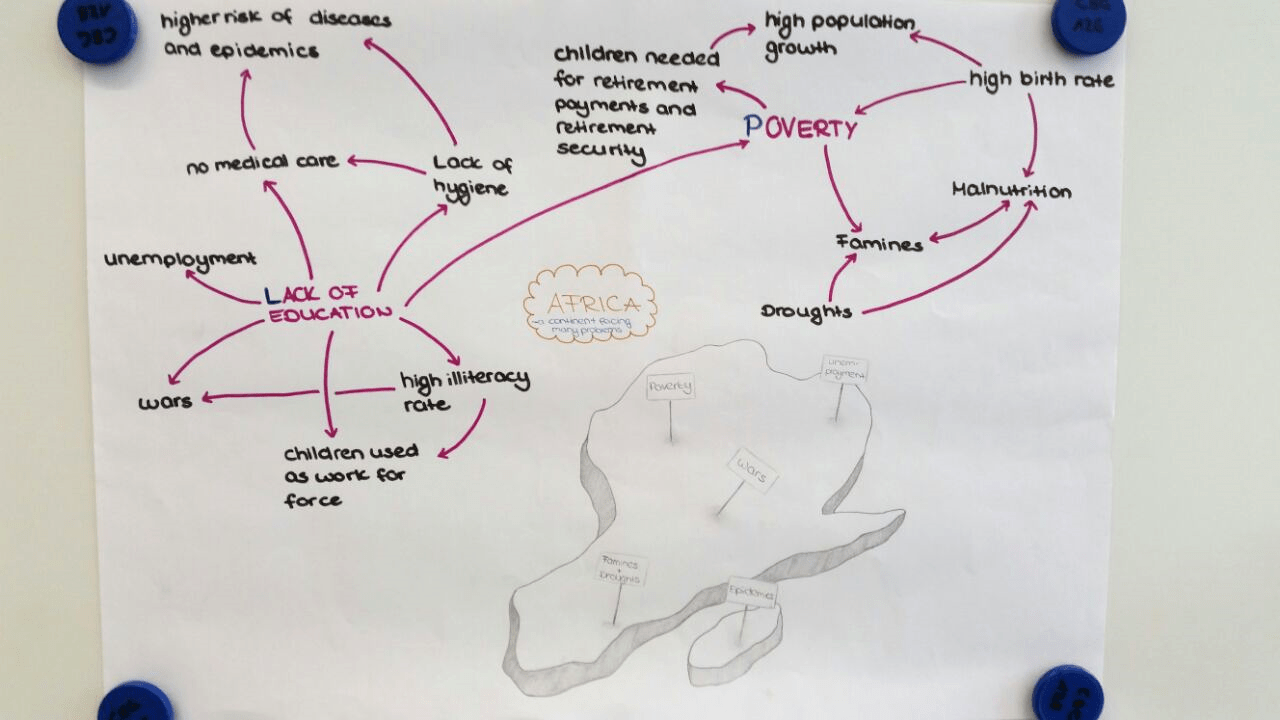 higher risk of diseases
and epidemics
high population
growth
children needed
for retirement
payments and
retirement
security
high birth rate
POVERTY
no medical care
Lack of
hygiene
Malnutrition
Famines
unemployment
LACK OF
EDUCATION
AFRICA
-a continent facing
many problems
Droughts
high illiteracy
rate
wars
children used
as work for
force
Poverty
unem-
ployment
Wars
Famines
+
Droughts
Epidemics